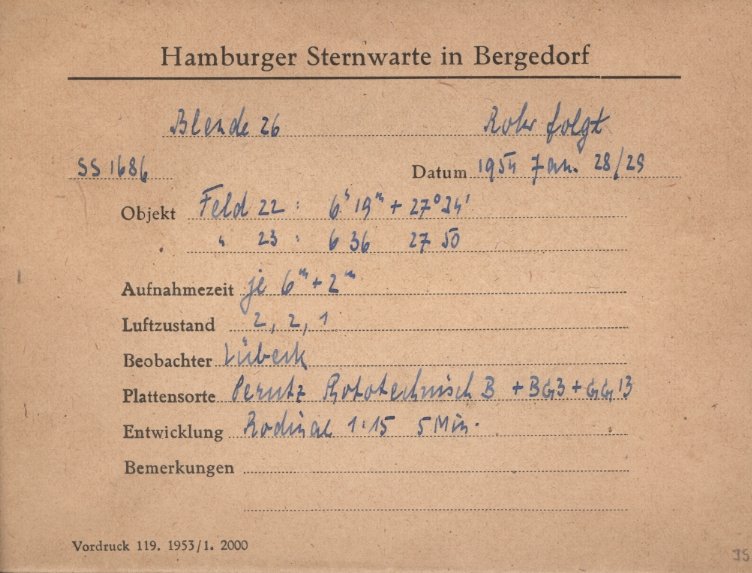 Hamburger Sternwarte in Bergedorf
Blende 26 Rohr folgt
SS 1686 Datum 1954 Jan. 28/29
Objekt Feld 22 : 6ʰ 19ᵐ + 27° 34'
" 23 : 6 36 27 50
Aufnahmezeit je 6ᵐ + 2ᵐ
Luftzustand 2, 2, 1
Beobachter Lübeck
Plattensorte Perutz Phototechnisch B + BG3 + GG13
Entwicklung Rodinal 1:15 5 Min.
Bemerkungen
Vordruck 119. 1953/1. 2000